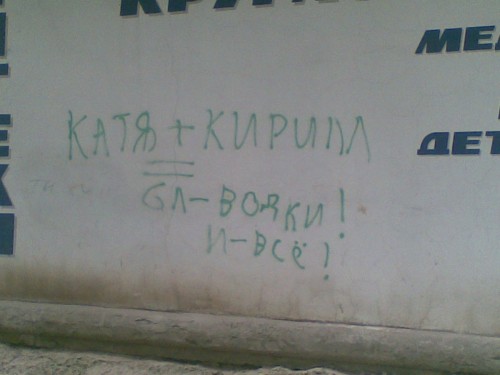 КРУП
МЕЛ
ДЕТ
КАТЯ + КИРИЛЛ
=
6Л - ВОДКИ!
И - ВСЁ!